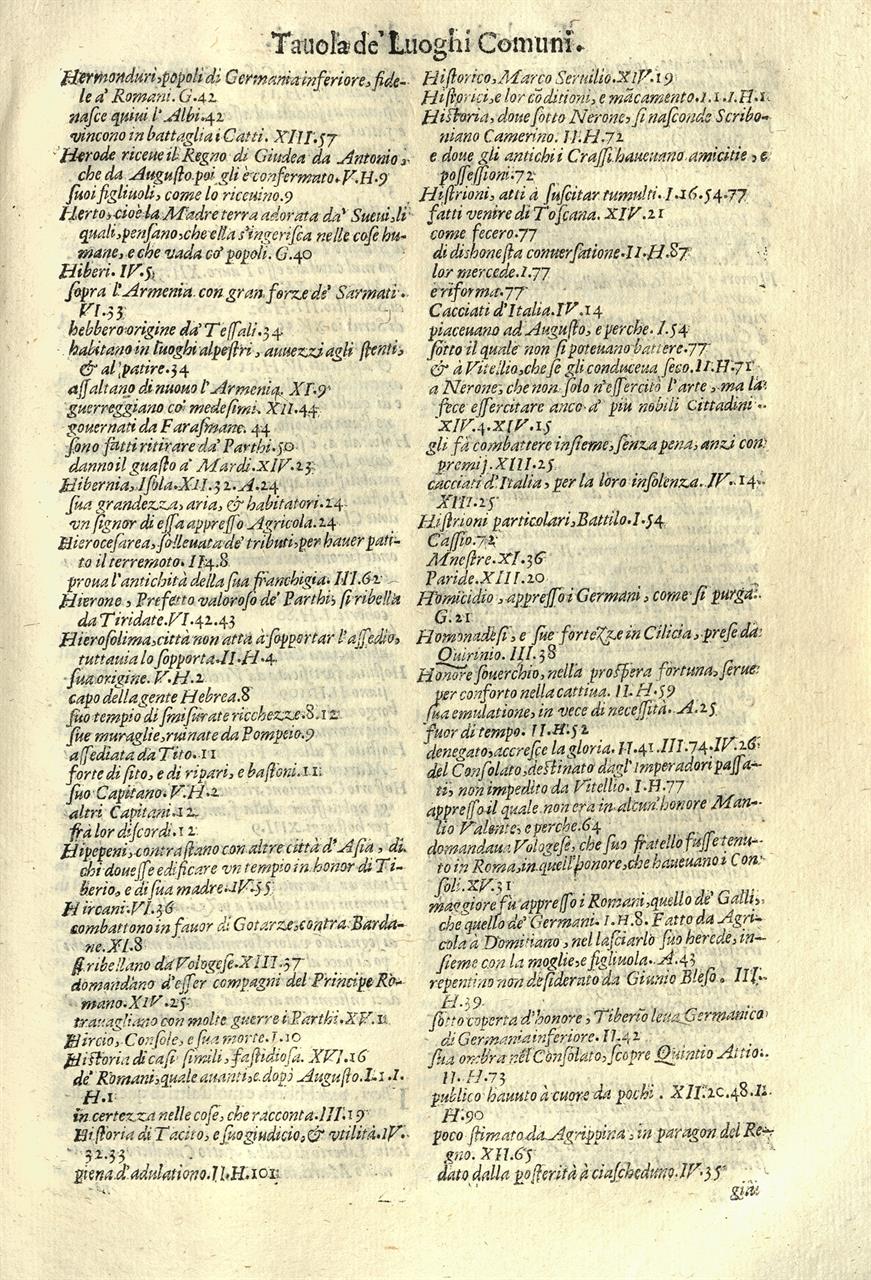 Tauola de' Luoghi Comuni.
Hermonduri, popoli di Germania inferiore, fide-
le a' Romani. G.42
nasce quiui l' Albi.42
vincono in battaglia i Catti. XIII.57
Herode riceue il Regno di Giudea da Antonio,
che da Augusto poi gli è confermato. V.H.9
suoi figliuoli, come lo riceuino.9
Herto, cioè la Madre terra adorata da' Sueui, li
quali, pensano, che ella s'ingerisca nelle cose hu-
mane, e che vada co' popoli. G.40
Hiberi. IV.5
sopra l'Armenia con gran forze de' Sarmati.
VI.33
hebbero origine da' Tessali.34
habitano in luoghi alpestri, auuezzi agli stenti,
& al patire.34
assaltano di nuouo l'Armenia. XI.9
guerreggiano co' medesimi. XII.44
gouernati da Farasmane. 44
sono fatti ritirare da' Parthi.50
danno il guasto a' Mardi. XIV.23
Hibernia, Isola. XII.32. A.24
sua grandezza, aria, & habitatori.24
vn signor di essa appresso Agricola.24
Hierocesarea, solleuata de' tributi, per hauer pati-
to il terremoto. II4.8
proua l'antichità della sua franchigia. III.62
Hierone, Prefetto valoroso de' Parthi, si ribella
da Tiridate. VI.42.43
Hierosolima, città non atta à sopportar l'assedio,
tuttauia lo sopporta. II.H.4
sua origine. V.H.2
capo della gente Hebrea.8
suo tempio di smisurate ricchezze.8.12
sue muraglie, ruinate da Pompeio.9
assediata da Tito.11
forte di sito, e di ripari, e bastoni.11
suo Capitano. V.H.2
altri Capitani.12
frà lor discordi.12
Hipepeni, contrastano con altre città d'Asia, di
chi douesse edificare vn tempio in honor di Ti-
berio, e di sua madre. IV.55
Hircani. VI.36
combattono in fauor di Gotarze, contra Barda-
ne. XI.8
si ribellano da Vologese. XIII.37
domandano d'esser compagni del Principe Ro-
mano. XIV.25
trauagliano con molte guerre i Parthi. XV.1
Hircio, Console, e sua morte. I.10
Historia di casi simili, fastidiosa. XVI.16
de' Romani, quale auanti, e dopò Augusto. I.1.I.
H.1
in certezza nelle cose, che racconta. III.19
Historia di Tacito, e suo giudicio, & vtilità. IV.
32.33
piena d'adulationo. II.H.101
Historico, Marco Seruilio. XIV.19
Historici, e lor cōditioni, e mācamento. I.1.I.H.1
Historia, doue sotto Nerone, si nasconde Scribo-
niano Camerino. II.H.72
e doue gli antichi i Crassi haueuano amicitie, e
possessioni.72
Histrioni, atti à suscitar tumulti. I.16.54.77
fatti venire di Toscana. XIV.21
come fecero.77
di dishonesta conuersatione. II.H.87
lor mercede. I.77
e riforma.77
Cacciati d'Italia. IV.14
piaceuano ad Augusto, e perche. I.54
sotto il quale non si poteuano battere.77
& à Vitellio, che se gli conduceua seco. II.H.71
a Nerone, che non solo n'essercitò l'arte, ma la
fece essercitare anco a' più nobili Cittadini.
XIV.4.XIV.15
gli fà combattere insieme, senza pena, anzi con
premij. XIII.25
cacciati d'Italia, per la loro insolenza. IV.14.
XIII.25
Histrioni particolari, Battilo. I.54
Cassio.72
Mnestre. XI.36
Paride. XIII.20
Homicidio, appresso i Germani, come si purga.
G.21
Homonadesi, e sue fortezze in Cilicia, prese da
Quirinio. III.38
Honore souerchio, nella prospera fortuna, serue
per conforto nella cattiua. II.H.59
sua emulatione, in vece di necessità. A.25
fuor di tempo. II.H.52
denegato, accresce la gloria. II.41.III.74.IV.26
del Consolato, destinato dagl'Imperadori passa-
ti, non impedito da Vitellio. I.H.77
appresso il quale non era in alcun'honore Man-
lio Valente, e perche.64
domandaua Vologese, che suo fratello fusse tenu-
to in Roma, in quell'honore, che haueuano i Con
soli. XV.31
maggiore fù appresso i Romani, quello de' Galli,
che quello de' Germani. I.H.8. Fatto da Agri-
cola à Domitiano, nel lasciarlo suo herede, in-
sieme con la moglie, e figliuola. A.43
repentino non desiderato da Giunio Bleso. III.
H.39
sotto coperta d'honore, Tiberio leua Germanico
di Germania inferiore. II.42
sua ombra nel Consolato, scopre Quintio Attio.
II.H.73
publico hauuto à cuore da pochi. XII.20.48.II.
H.90
poco stimato da Agrippina, in paragon del Re-
gno. XII.65
dato dalla posterità à ciascheduno. IV.35
giu